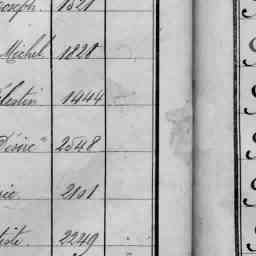 Joseph 1521
Michel 1828
élestin 1444
Désiré" 2548
rie 2101
tiste 2249